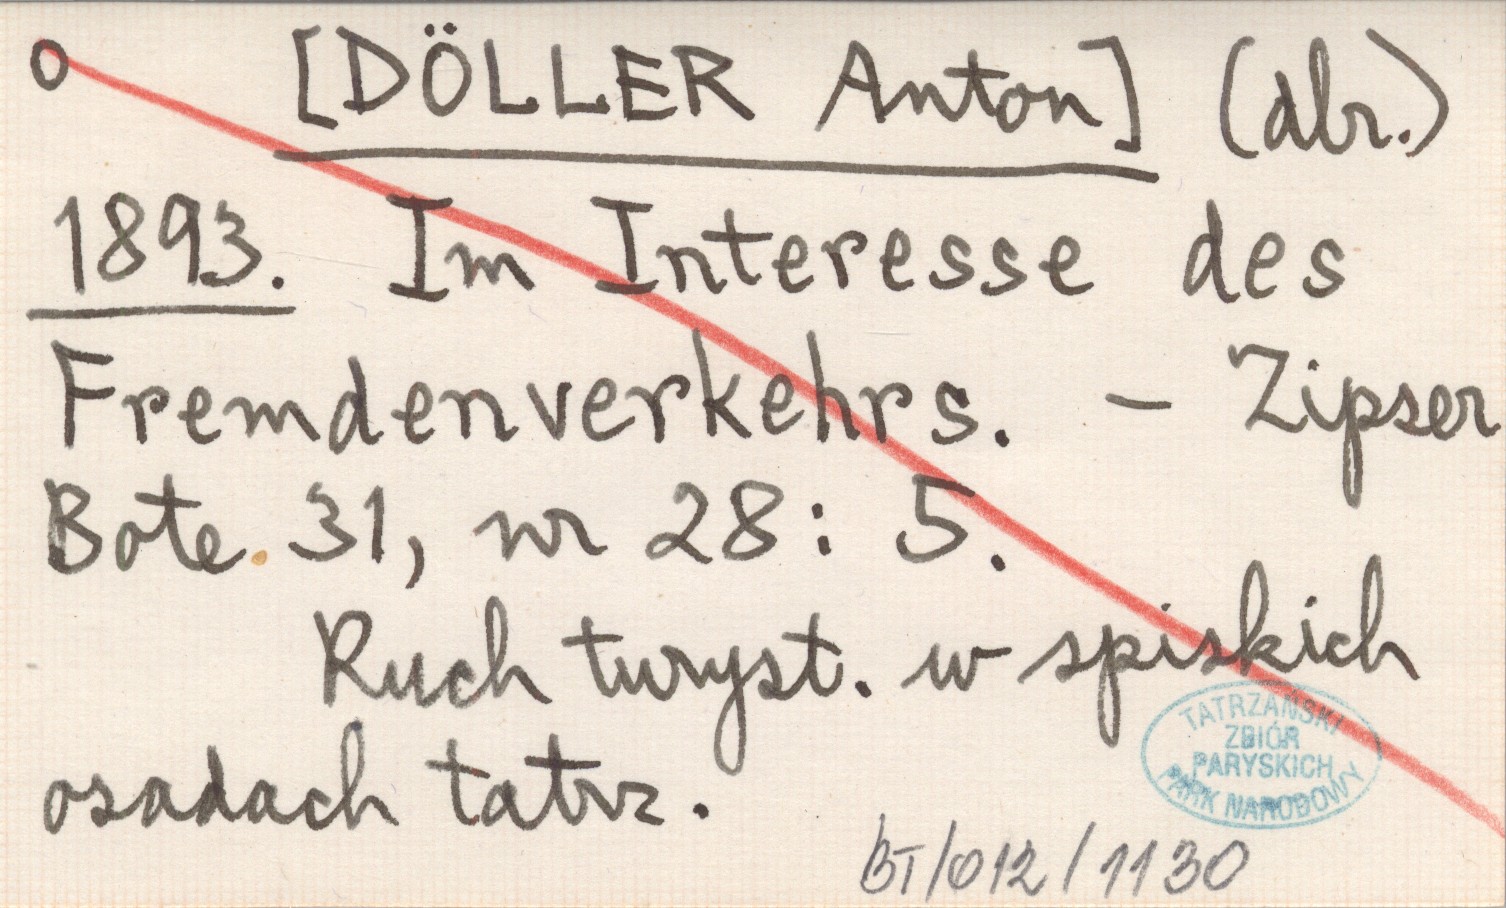 o [DÖLLER Anton] (dbr.)
1893. Im Interesse des
Fremdenverkehrs. – Zipser
Bote 31, nr 28: 5.
Ruch turyst. w spiskich
osadach tatrz.
TATRZAŃSKI
ZBIÓR
PARYSKICH
PARK NARODOWY
BT/012/1130